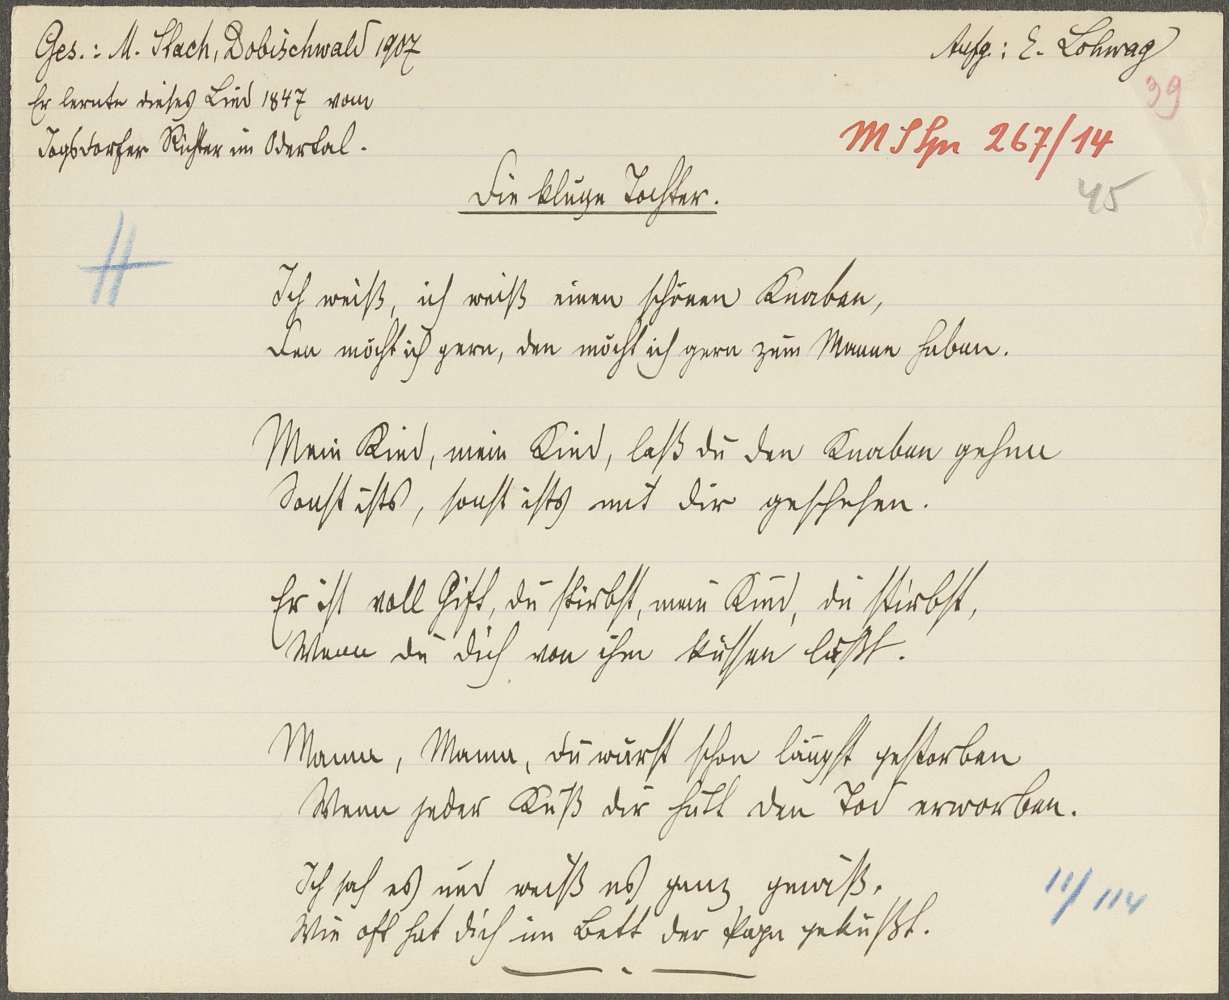 Ges.: M. Stach, Dobischwald 1907
Aufg: E. Lohwag
Er lernte dieses Lied 1847 vom
39
Jogsdorfer Richter im Odertal.
267/14
Die kluge Tochter.
45
Ich weiß, ich weiß einen schönen Knaben,
Den möcht ich gern, den möcht ich gern zum Manne haben.
Mein Kind, mein Kind, laß du den Knaben gehen
Sonst ists, sonst ists mit dir geschehen.
Er ist voll Gift, du stirbst, mein Kind, du stirbst,
Wenn du dich von ihm küssen läßt.
Mama, Mama, du wärst schon längst gestorben
Wenn jeder Kuß dir hätt den Tod erworben.
Ich sah es und weiß es ganz gewiß.
Wie oft hat dich im Bett der Papa geküßt.
11/114